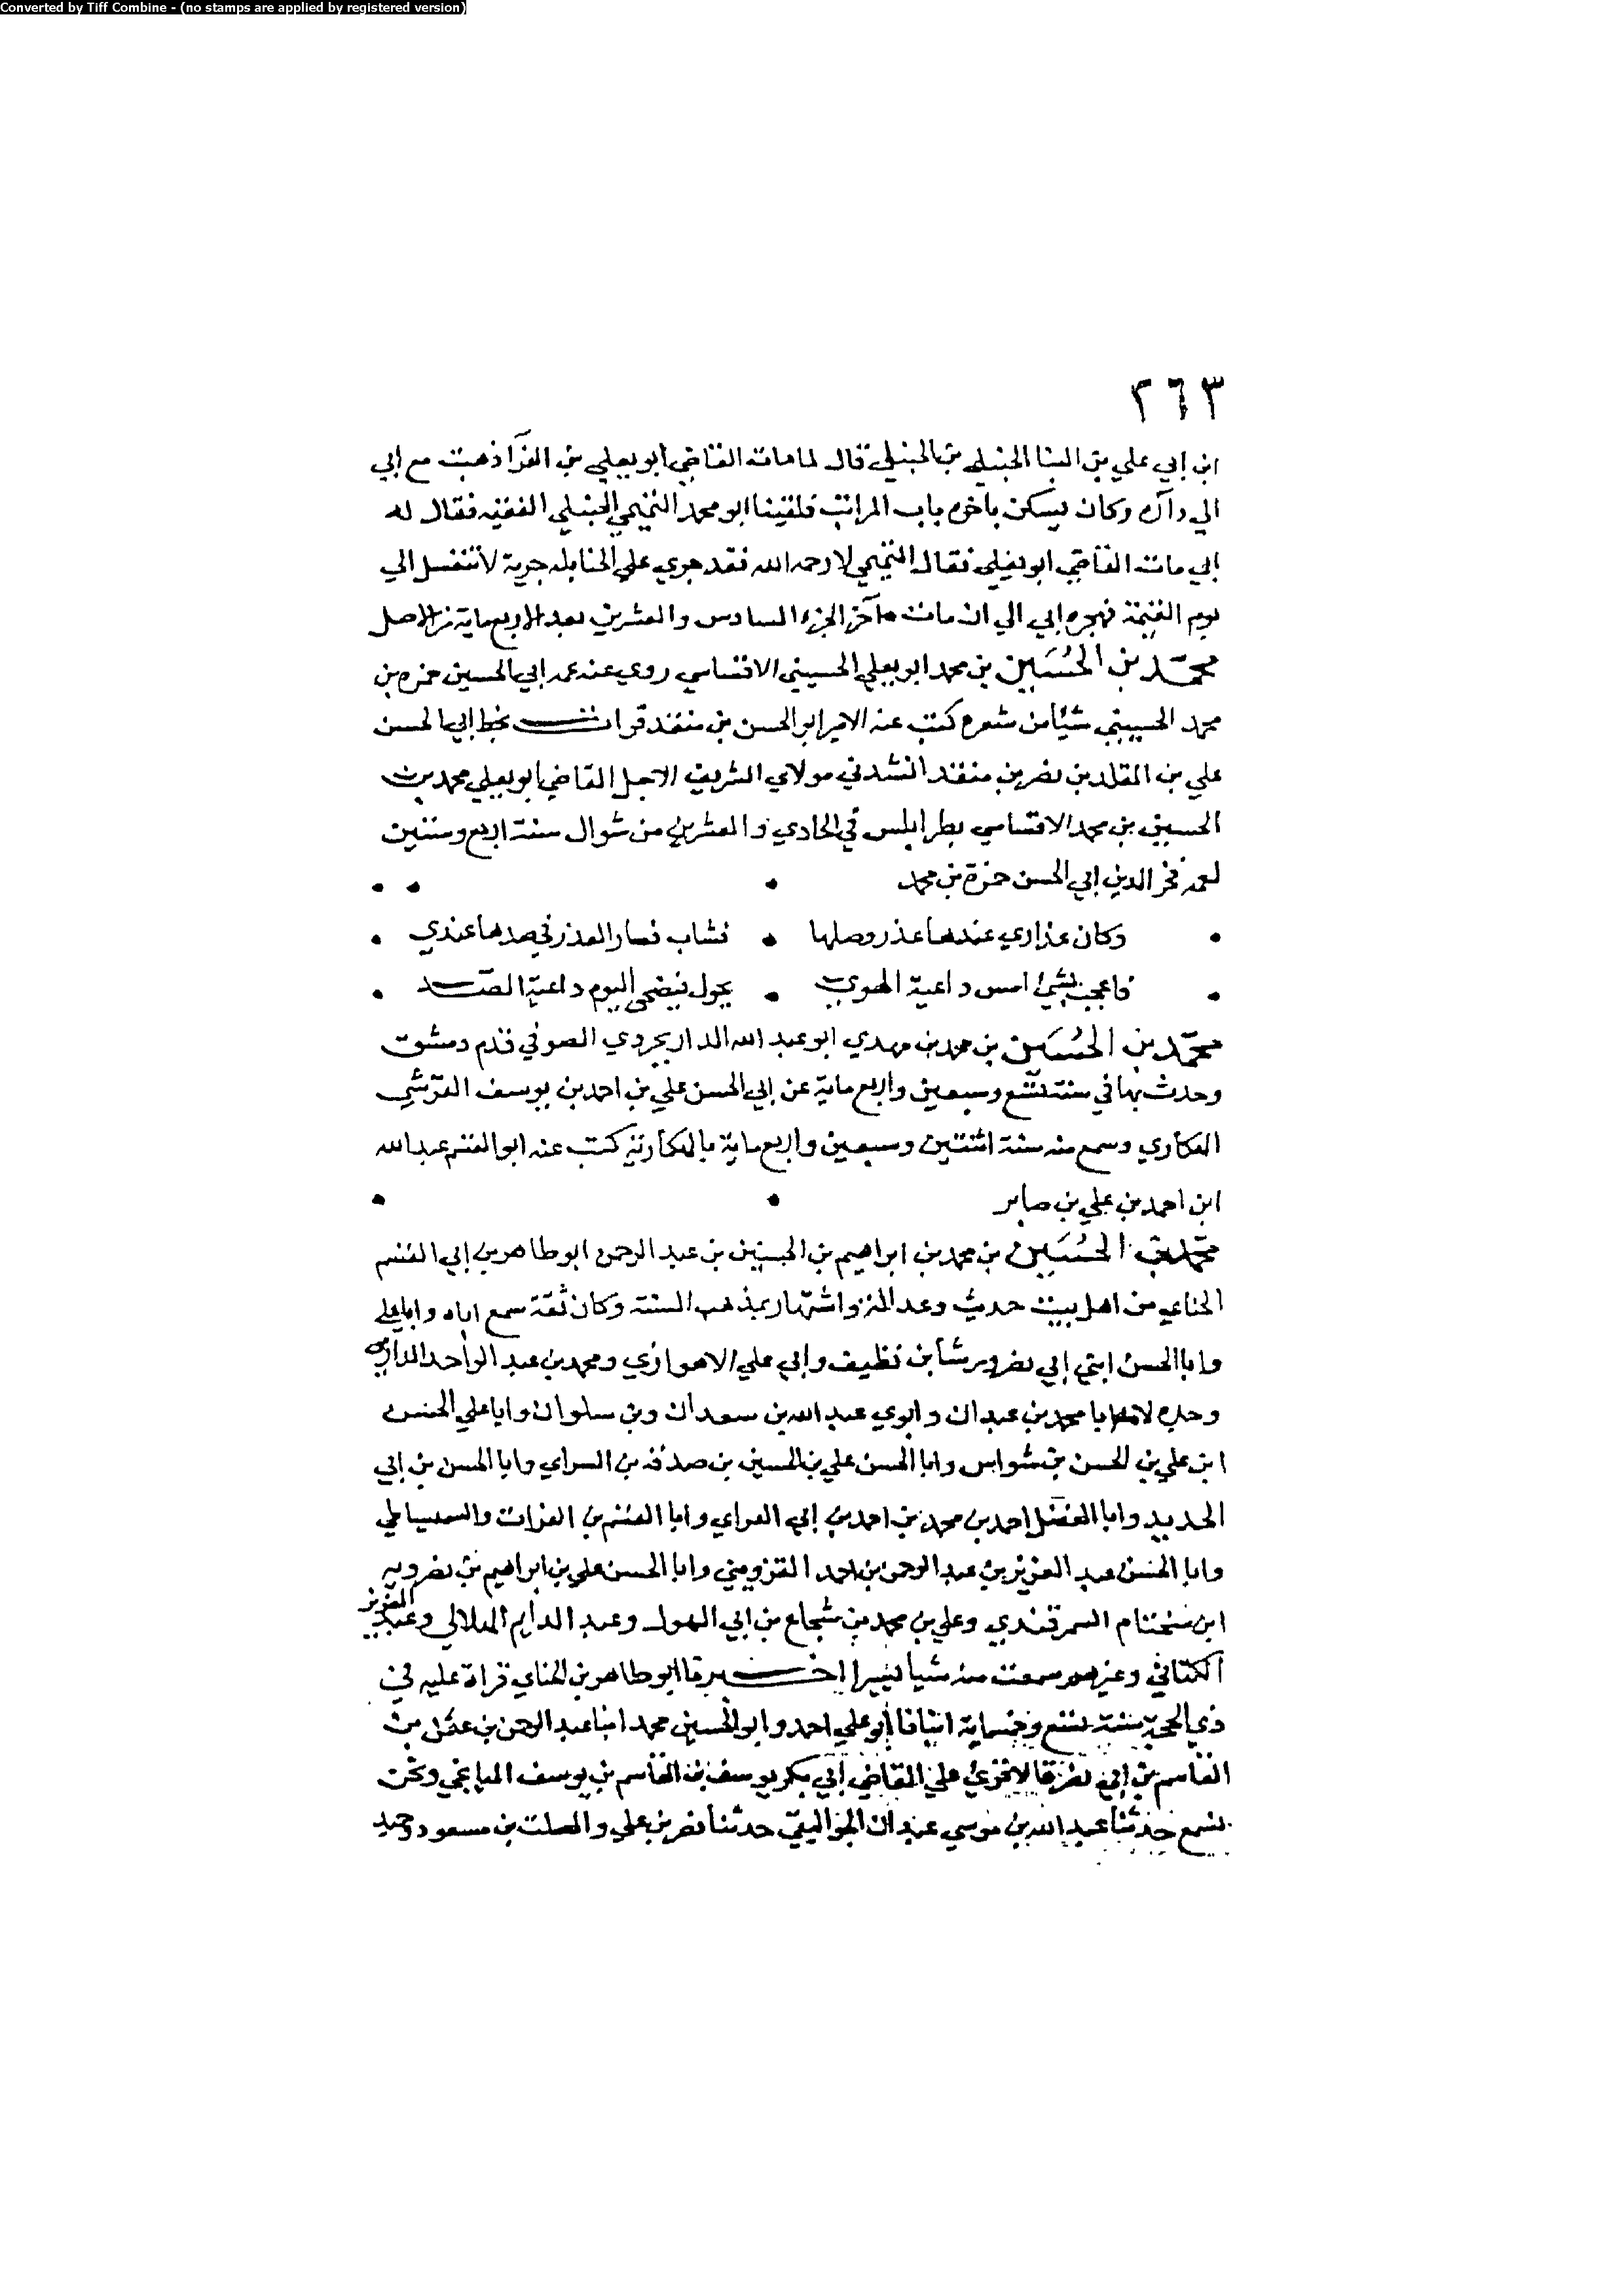 Converted by Tiff Combine - (no stamps are applied by registered version)
٢٦٣
ابن ابي علي بن البنا الحنبلي بن الحنبلي قال لما مات القاضي ابو يعلي بن الفرا ذهبت مع ابي
الي داره وكان يسكن باخره باب المراتب فلقينا ابو محمد التميمي الحنبلي الفقيه فقال له
ابي مات القاضي ابو يعلي فقال التميمي لا رحمه الله فقد جري علي الحنابله جرية لا تنغسل الي
يوم القيمة فهجره ابي الي ان مات آخر الجزء السادس والعشرين بعد الاربعماية من الاصل
محمد بن الحسين بن محمد ابو يعلي الحسيني الاقساسي روي عنه عمه ابي الحسين حمزه بن
محمد الحسيني شيئا من شعره كتب عنه الامير ابو الحسن بن منقذ قرات بخط ابي الحسن
علي بن المقلد بن نصر بن منقذ انشدني مولاي الشريف الاجل القاضي ابو يعلي محمد بن
الحسين بن محمد الاقساسي بطرابلس في الحادي والعشرين من شوال سنة اربع وستين
لعمه فخر الدين ابي الحسن حمزة بن محمد
وكان عذاري عندها عذر وصلها • فشاب فصار العذر في صدها عندي
فاعجب بشئ امس داعية الهوي • يحول فيضحي اليوم داعية الصد
محمد بن الحسين بن حمد بن مهدي ابو عبد الله الدارجردي الصوفي قدم دمشق
وحدث بها في سنة تسع وسبعين واربع ماية عن ابي الحسن علي بن احمد بن يوسف القرشي
الهكاري وسمع منه سنة اثنتين وسبعين واربع ماية بالهكارية كتب عنه ابو القسم عبد الله
ابن احمد بن علي بن صابر
محمد بن الحسين بن محمد بن ابراهيم بن الحسين بن عبد الرحمن ابو طاهر بن ابي القسم
الحناي من اهل بيت حديث وعدالة واشتهار بمذهب السنة وكان ثقة سمع اباه وابا علي
وابا الحسن ابني ابي نصر ورشا بن نظيف وابي علي الاهوازي ومحمد بن عبد الواحد الدارمي
وجده لامه ابا محمد بن عبدان وابوي عبد الله بن سعدان وبن سلوان وابا علي الحسن
ابن علي بن الحسن بن شواس وابا الحسن علي بن الحسين بن صدقه بن السراي وابا الحسن بن ابي
الحديد وابا الفضل احمد بن محمد بن احمد بن ابي الفراي وابا القسم بن الفرات والسميساطي
وابا الحسن عبد العزيز بن عبد الرحمن بن احمد القزويني وابا الحسن علي بن ابراهيم بن نصرويه
ابن سختام السمرقندي وعلي بن محمد بن شجاع بن ابي الهول وعبد الدايم الهلالي وعبد العزيز
الكتاني وغيرهم سمعت منه شيا يسيرا اخبرنا ابو طاهر بن الحناي قراة عليه في
ذي الحجة سنة تسع وخمسماية انبانا ابو علي احمد وابو الحسين محمد ابنا عبد الرحمن بن عثمن بن
القاسم بن ابي نصر قالا قرئ علي القاضي ابي بكر يوسف بن القاسم بن يوسف الميانجي ونحن
نسمع حدثنا عبد الله بن موسي عبدان الجواليقي حدثنا نصر بن علي والصلت بن مسعود وحميد